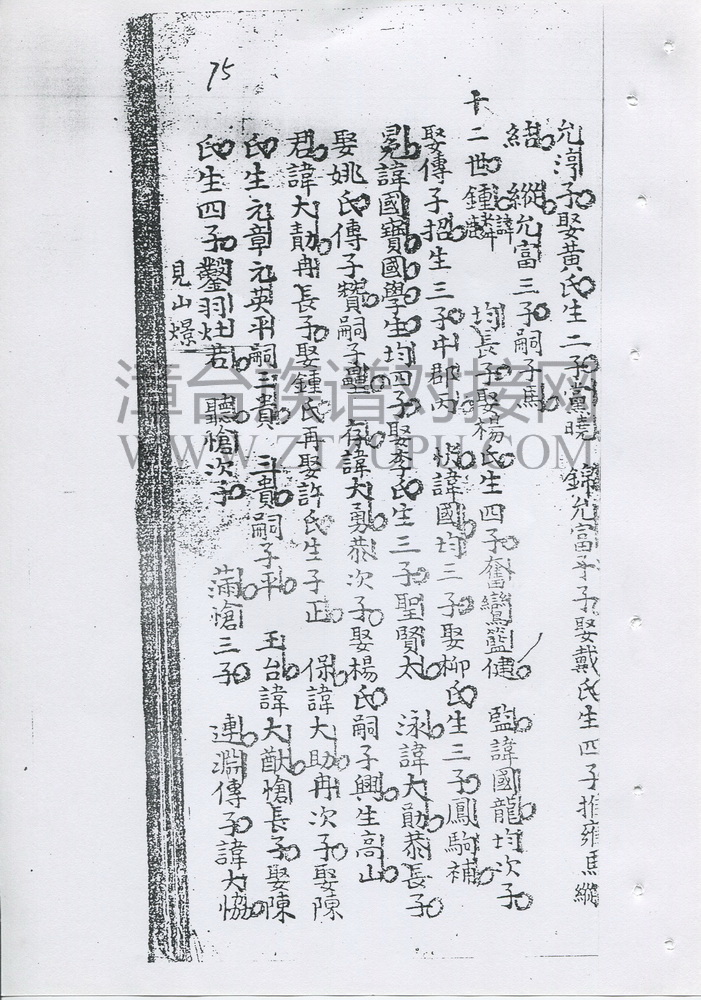 75
允渟子娶黃氏生二子黨曉 錦允富子娶戴氏生四子推雍馬縱
縱允富三子嗣子馬
十二世鍾麟諱 均長子娶楊氏生四子奮鸞籃健 監諱國龍均次子
娶傳子招生三子中郡丙 諱國均三子娶柳氏生三子鳳駒補
冕諱國寶國學生均四子娶李氏生三子聖賢太 泳諱大勛恭長子
娶姚氏傳子贊嗣子壘 存諱大勇恭次子娶楊氏嗣子興生高山
君諱大勣冉長子娶鍾氏再娶許氏生子正 保諱大助冉次子娶陳
氏生元章元英平嗣三貴 三貴嗣子平 王台諱大猷愴長子娶陳
氏生四子鑿羽灶若 聽愴次子 滿愴三子 連淵傳子諱大協
見山
漳台族谱对接网
WWW.ZTZUPU.COM